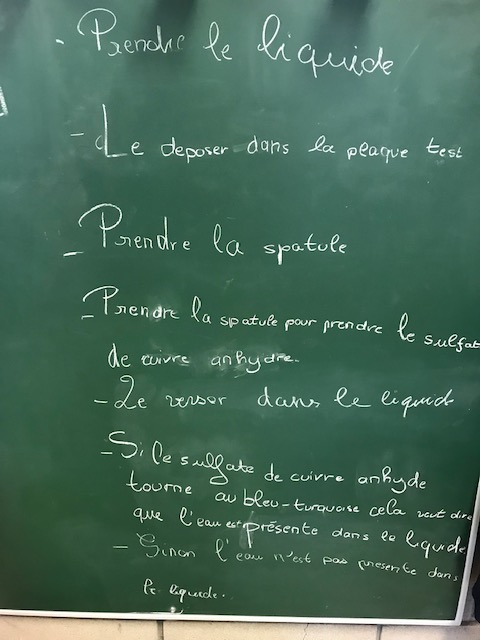 - Prendre le liquide
- Le deposer dans la plaque test
- Prendre la spatule
- Prendre la spatule pour prendre le sulfat
de cuivre anhydre.
- Le verser dans le liquide
- Si le sulfate de cuivre anhyde
tourne au bleu-turquoise cela veut dire
que l'eau est présente dans le liquide
- Sinon l'eau n'est pas presente dans
le liquide.